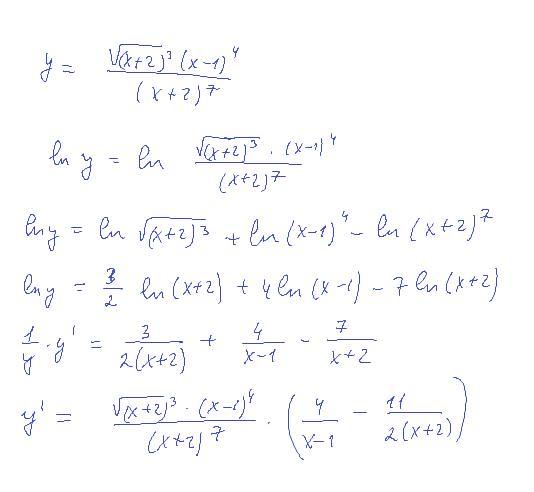 y = √(x+2)³ (x-1)⁴ / (x+2)⁷
ln y = ln √(x+2)³ · (x-1)⁴ / (x+2)⁷
ln y = ln √(x+2)³ + ln (x-1)⁴ - ln (x+2)⁷
ln y = 3/2 ln (x+2) + 4 ln (x-1) - 7 ln (x+2)
1/y · y' = 3/2(x+2) + 4/x-1 - 7/x+2
y' = √(x+2)³ · (x-1)⁴ / (x+2)⁷ · (4/x-1 - 11/2(x+2))